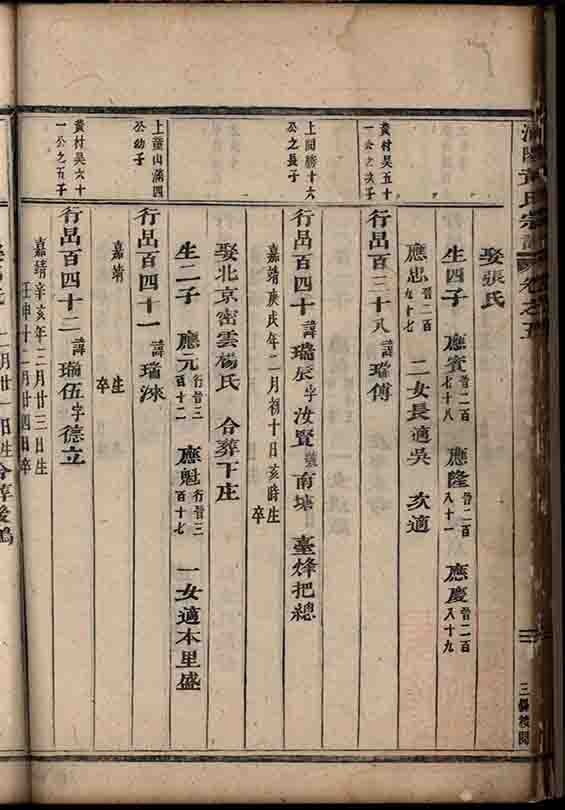 氏宗譜 卷之五
娶張氏
生四子 應賓晉二百七十八 應隆晉二百八十一 應慶晉二百八十九
應忠晉二百九十七 二女長適吳 次適
黃村吳五十一公之次子
行昺百三十八諱瑞傅
上田勝十六公之長子
行昺百四十諱瑞辰字汝賢號南塘 臺烽把總
嘉靖庚戌年二月初十日亥時生 卒
娶北京密雲楊氏 合葬下庄
生二子 應元行晉三百十二 應魁行晉三百十七 一女適本里盛
上董山滿四公幼子
行昺百四十一諱瑞洙
嘉靖 生 卒
黃村吳六十一公之五子
行昺百四十二諱瑞伍字德立
嘉靖辛亥年三月廿三日生
壬申十二月廿四日卒
月廿 日生合葬後塢